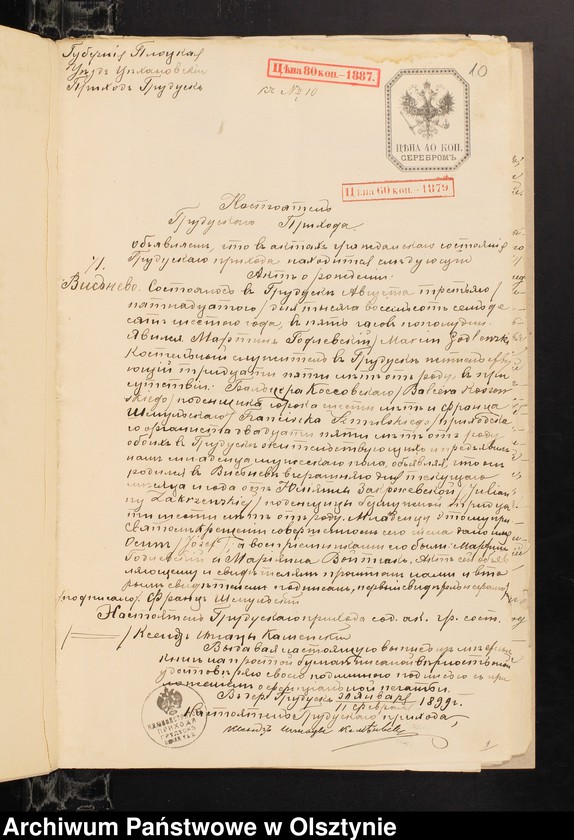 Губернія Плоцкая
Уѣздъ Цѣхановскій
Приходъ Грудускъ
къ № 10
Цѣна 80 коп.-1887.
10
ЦѢНА 40 КОП.
СЕРЕБРОМЪ
Цѣна 60 коп.-1879
Настоятель
Грудускаго Прихода.
объявляетъ, что въ актахъ гражданскаго состоянія
Грудускаго прихода находится слѣдующій
Актъ о рожденіи:
Висьнево. Состоялось въ Грудускѣ Августа третьяго/
пятнадцатого/ дня тысяча восемьсотъ семьде
сятъ шестого года, въ пять часовъ пополудни.
Явился Мартинъ Годлевскій/Marcin Godlewski
Костельный служитель въ Грудускѣ
тридцати пяти лѣтъ отъ роду, въ при
сутствіи: Коссовскаго/
поденщика сорока шести лѣтъ и Франца
Шмульскаго/Franciszka Szmulskiego/
двадцати пяти лѣтъ отъ роду
обоихъ въ Грудускѣ жительствующихъ и предъявилъ
намъ младенца мужескаго пола, объявляя, что онъ
родился въ Висьневѣ
мѣсяца и года отъ Юліянны Закржевской/Julian
ny Zakrzewskiej/ поденщицы тридца
ти шести лѣтъ отъ роду. Младенцу этому при
Святомъ крещеніи совершонномъ его дано имя
Осипъ/Józef/, а воспріемниками его были: Мартинъ
Годлевскій и Маріянна Войтчакъ. Актъ сей объяв
ляющему и свидѣтелямъ прочитанъ нами и вто
рымъ свидѣтелемъ подписанъ, первый свидѣтель неграм
/подписано/ Францъ Шмульскій
Настоятель Грудускаго прихода сод. ак. гр. сост.
/—/ Ксендзъ Игнацъ Каменскій
Выдавая настоящую выпись изъ метрич.
книгъ на простой бумагѣ
удостовѣряю своею подписью съ при
ложеніемъ оффиціяльной печати.
Грудускъ 30 Января/11 Февраля 1899 г.
Настоятель Грудускаго прихода,
Ксендзъ Игнацъ Каменскій
Archiwum Państwowe w Olsztynie